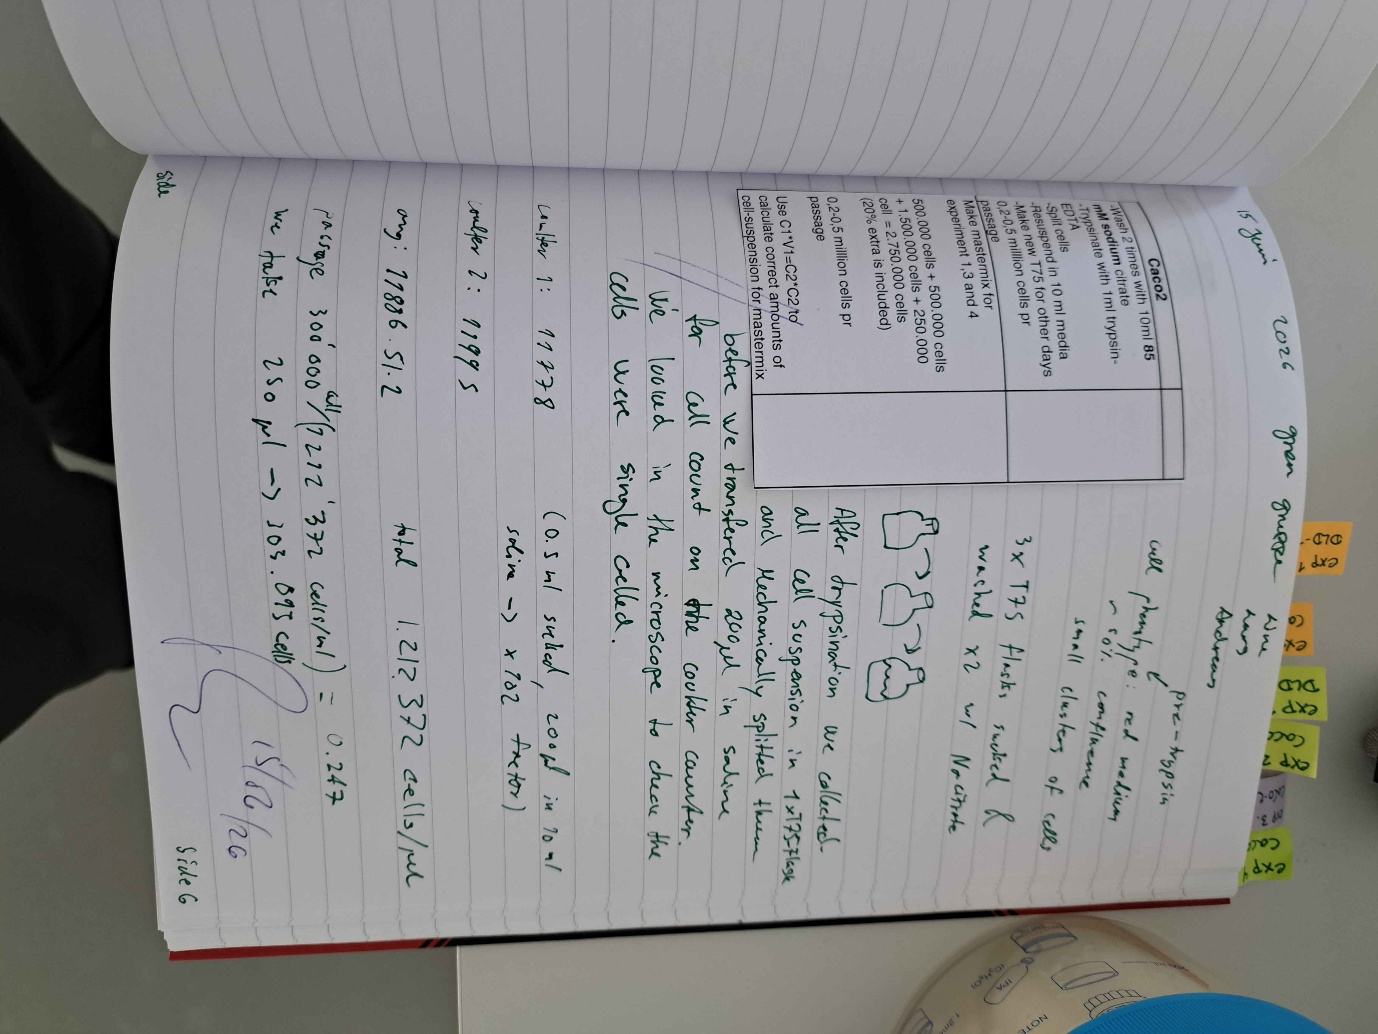 15 Juni 2026 grøn gruppe
Andreas
Caco2
-Wash 2 times with 10ml 85
mM sodium citrate
-Trypsinate with 1ml trypsin-
EDTA
-Split cells
-Resuspend in 10 ml media
-Make new T75 for other days
0,2-0,5 million cells pr
passage
Make mastermix for
experiment 1,3 and 4
500.000 cells + 500.000 cells
+ 1.500.000 cells + 250.000
cell = 2.750.000 cells
(20% extra is included)
0,2-0,5 milllion cells pr
passage
Use C1*V1=C2*C2 to
calculate correct amounts of
cell-suspension for mastermix
pre-trypsin
cell phenotype: red medium
~ 50% confluence
small clusters of cells
3x T75 flasks sucked &
washed x2 w/ Na-citrate
After trypsination we collected
all cell suspension in 1xT75-flask
and Mechanically splitted them
before we transfered 200µl in saline
for cell count on the coulter counter.
We looked in the microscope to check the
cells were single celled.
coulter 1: 11778 (0.5 ml sucked, 200µl in 10 ml
saline -> x 102 factor)
coulter 2: 11995
avg: 11886.51.2 total 1.212.372 cells/ml
passage 300'000 cell/(1212'372 cells/ml) = 0.247
we take 250 µl -> 303.093 cells
15/06/26
Side
Side 6